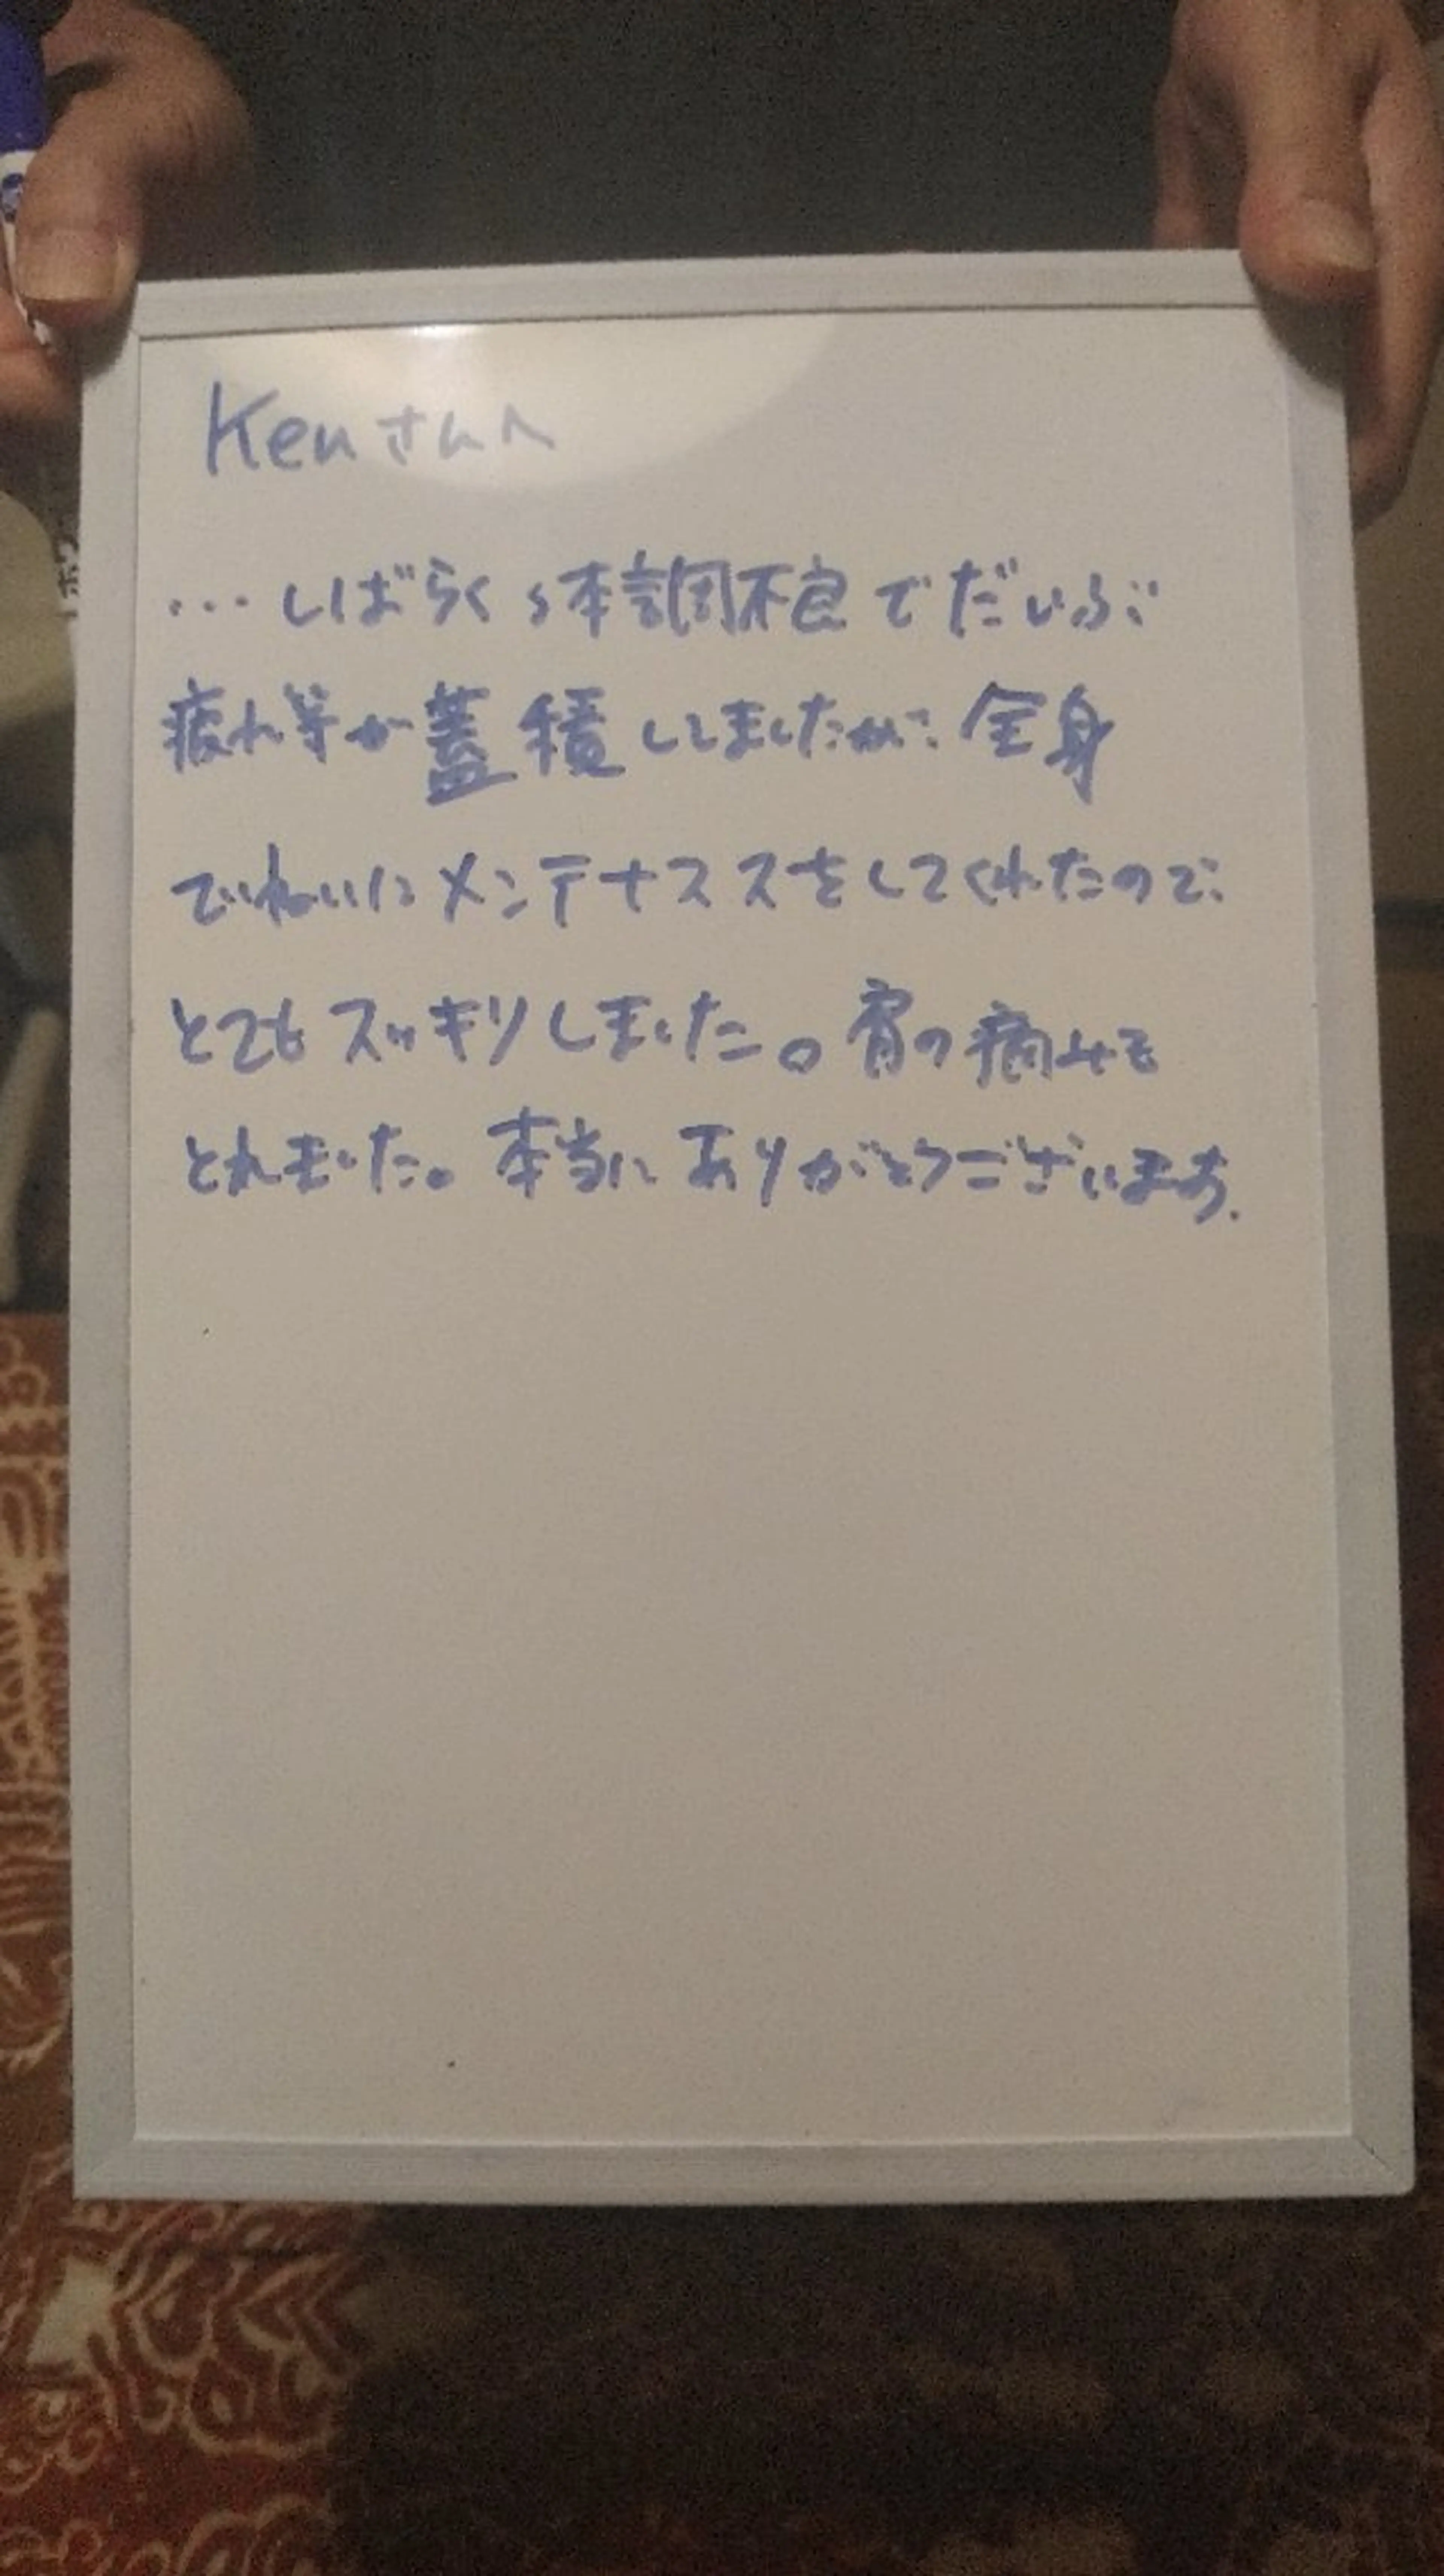 Kenさんへ
・・・しばらく体調不良でだいぶ
疲れ等が蓄積してましたが、全身
でいねいにメンテナススをしてくれたので、
とてもスッキリしました。肩の痛みも
とれました。本当にありがとうございます.